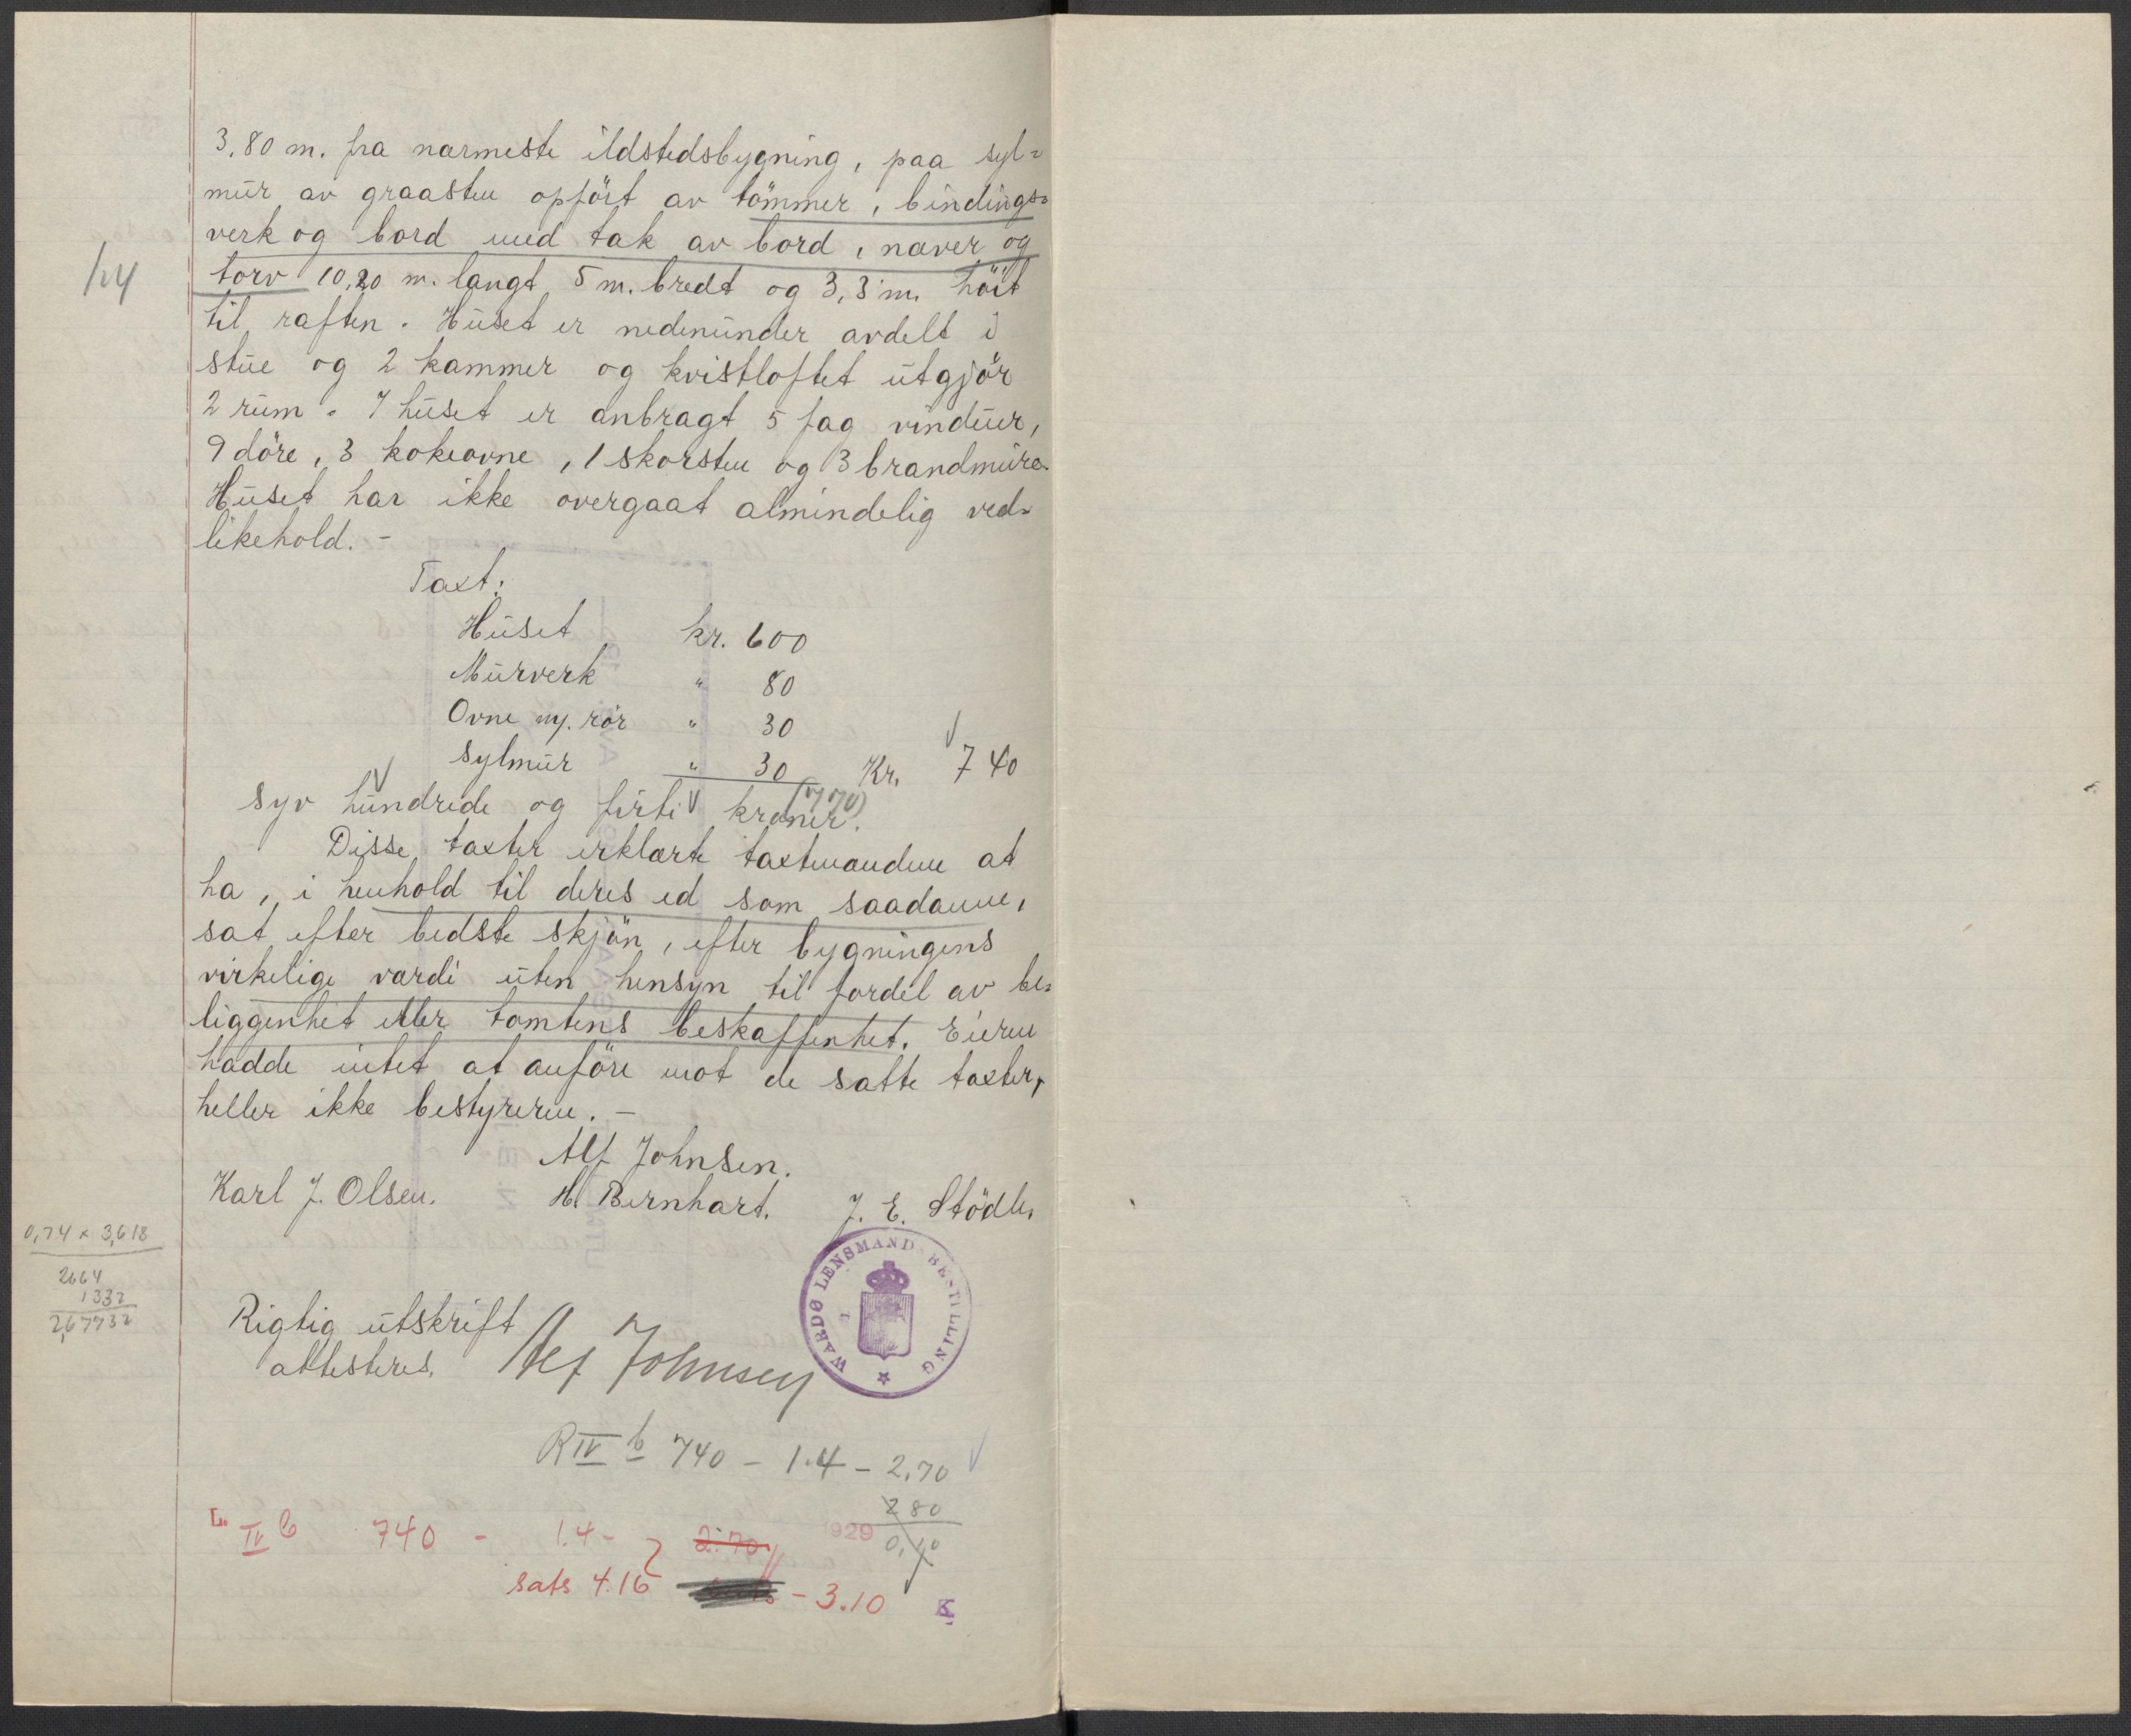 3,80 m. fra nærmeste ildstedsbygning, paa syl=
mur av graasten opfört av tömmer, bindings=
verk og bord med tak av bord, næver og
torv 10,20 m. langt 5 m. bredt og 3,3 m. höit
til raften. Huset er nedenunder avdelt i
stue og 2 kammer og kvistloftet utgjör
2 rum. I huset er anbragt 5 fag vinduer,
9 döre, 3 kokeovne, 1 skorsten og 3 brandmure.
Huset har ikke overgaat almindelig ved=
likehold. -
Taxt:
Huset kr. 600
Murverk " 80
Ovne m/. rör " 30
Sylmur " 30 Kr. 740
Syv hundrede og firti kroner.
Disse taxter erklærte taxtmændene at
ha, i henhold til deres ed som saadanne,
sat efter bedste skjön, efter bygningens
virkelige værdi uten hensyn til fordel av be=
liggenhet eller tomtens beskaffenhet. Eieren
hadde intet at anföre mot de satte taxter,
heller ikke bestyreren. -
Alf Johnsen.
Karl J. Olsen. H. Bernhart. J. E. Stödle.
0,74 x 3,618
2664
1332
2,67732
WARDØ LENSMANDSBESTILLING
Rigtig utskrift
attesteres. Alf Johnsen
R IV b 740 - 1.4 - 2.70
280
0,10
L. IV b 740 - 1.4 - 2.70 1929
sats 4.16 - 3.10 K.